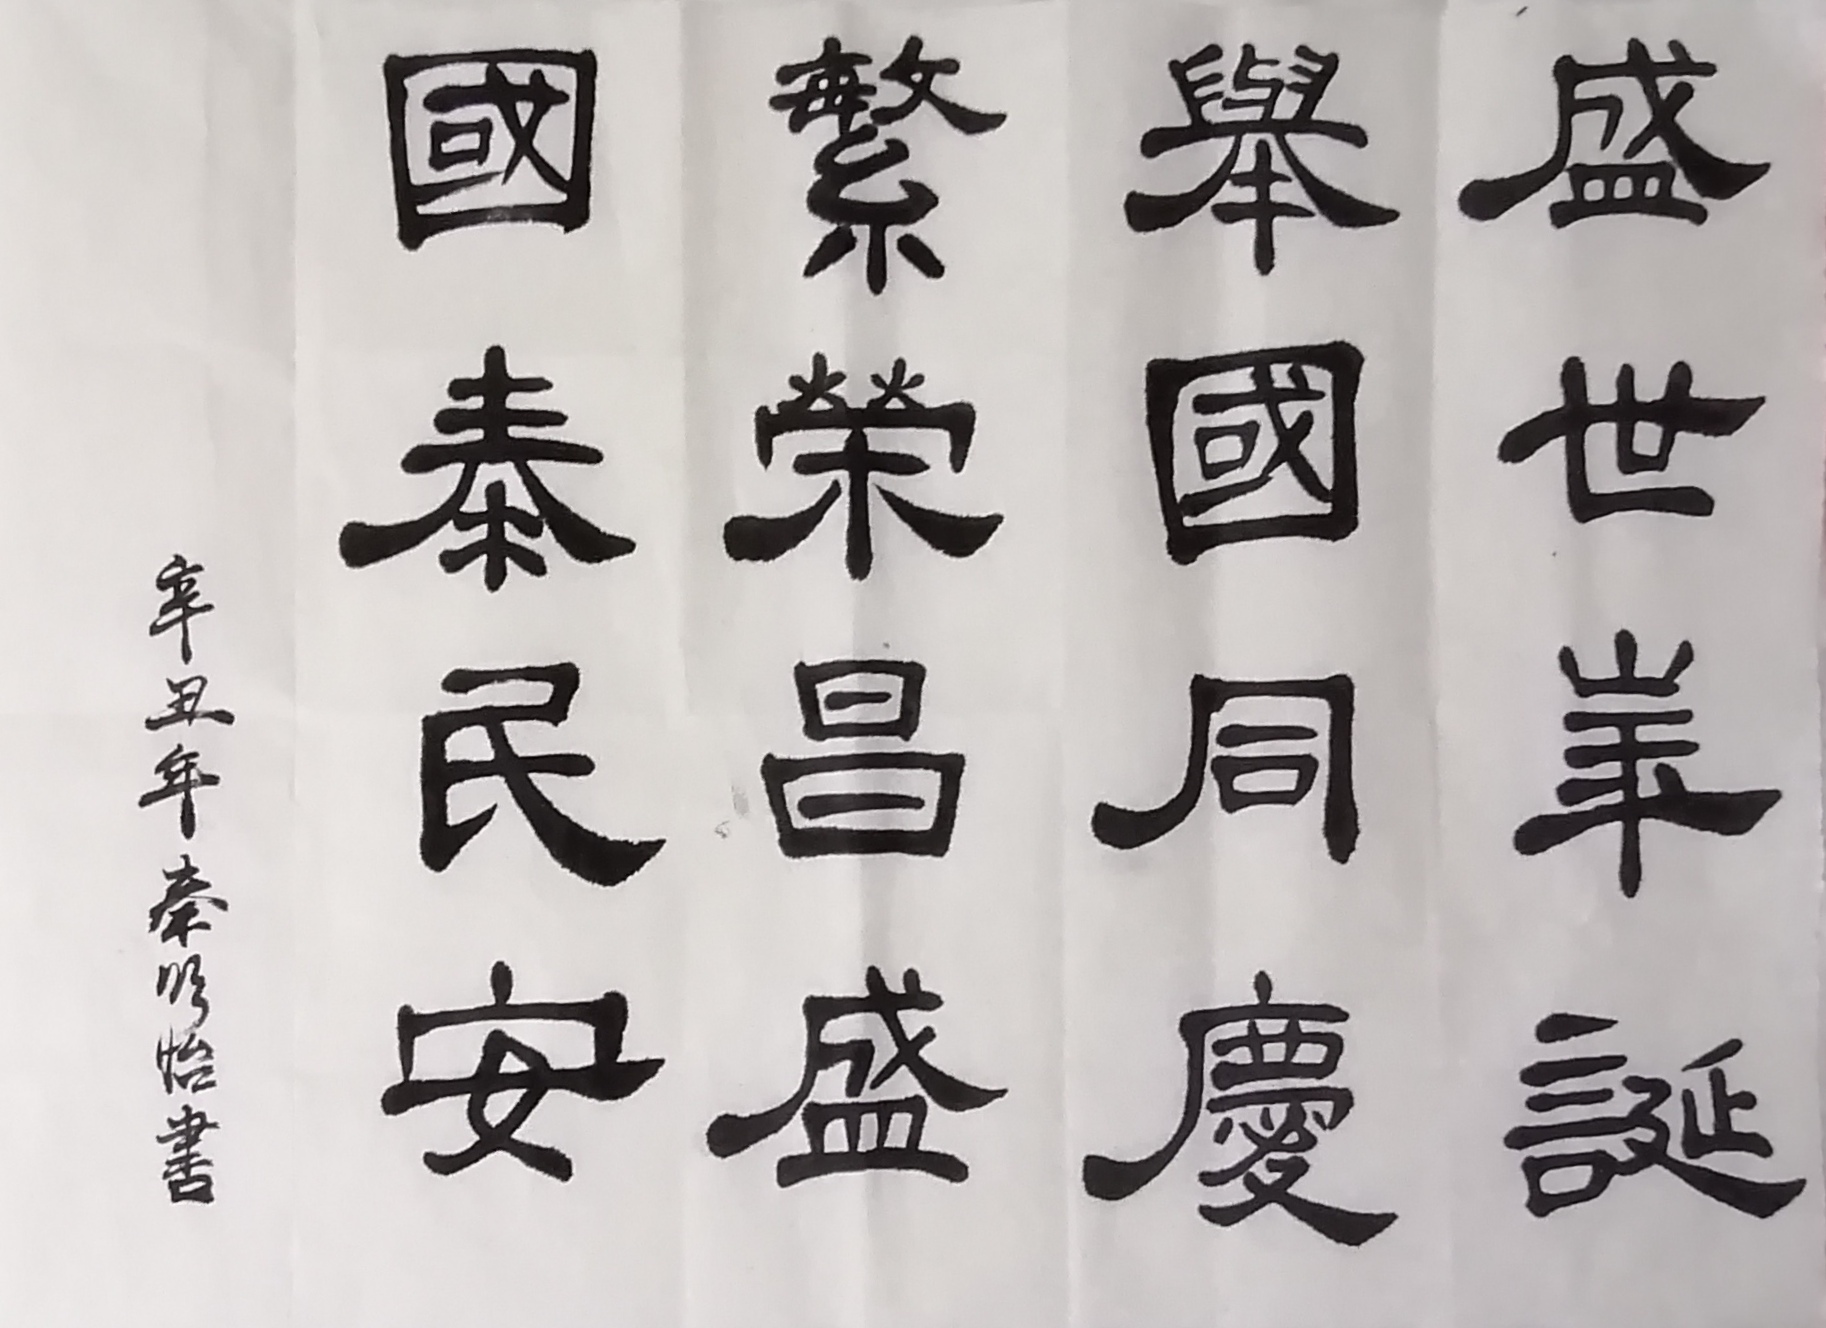 盛世華誕
舉國同慶
繁榮昌盛
國泰民安
辛丑年秦怡書